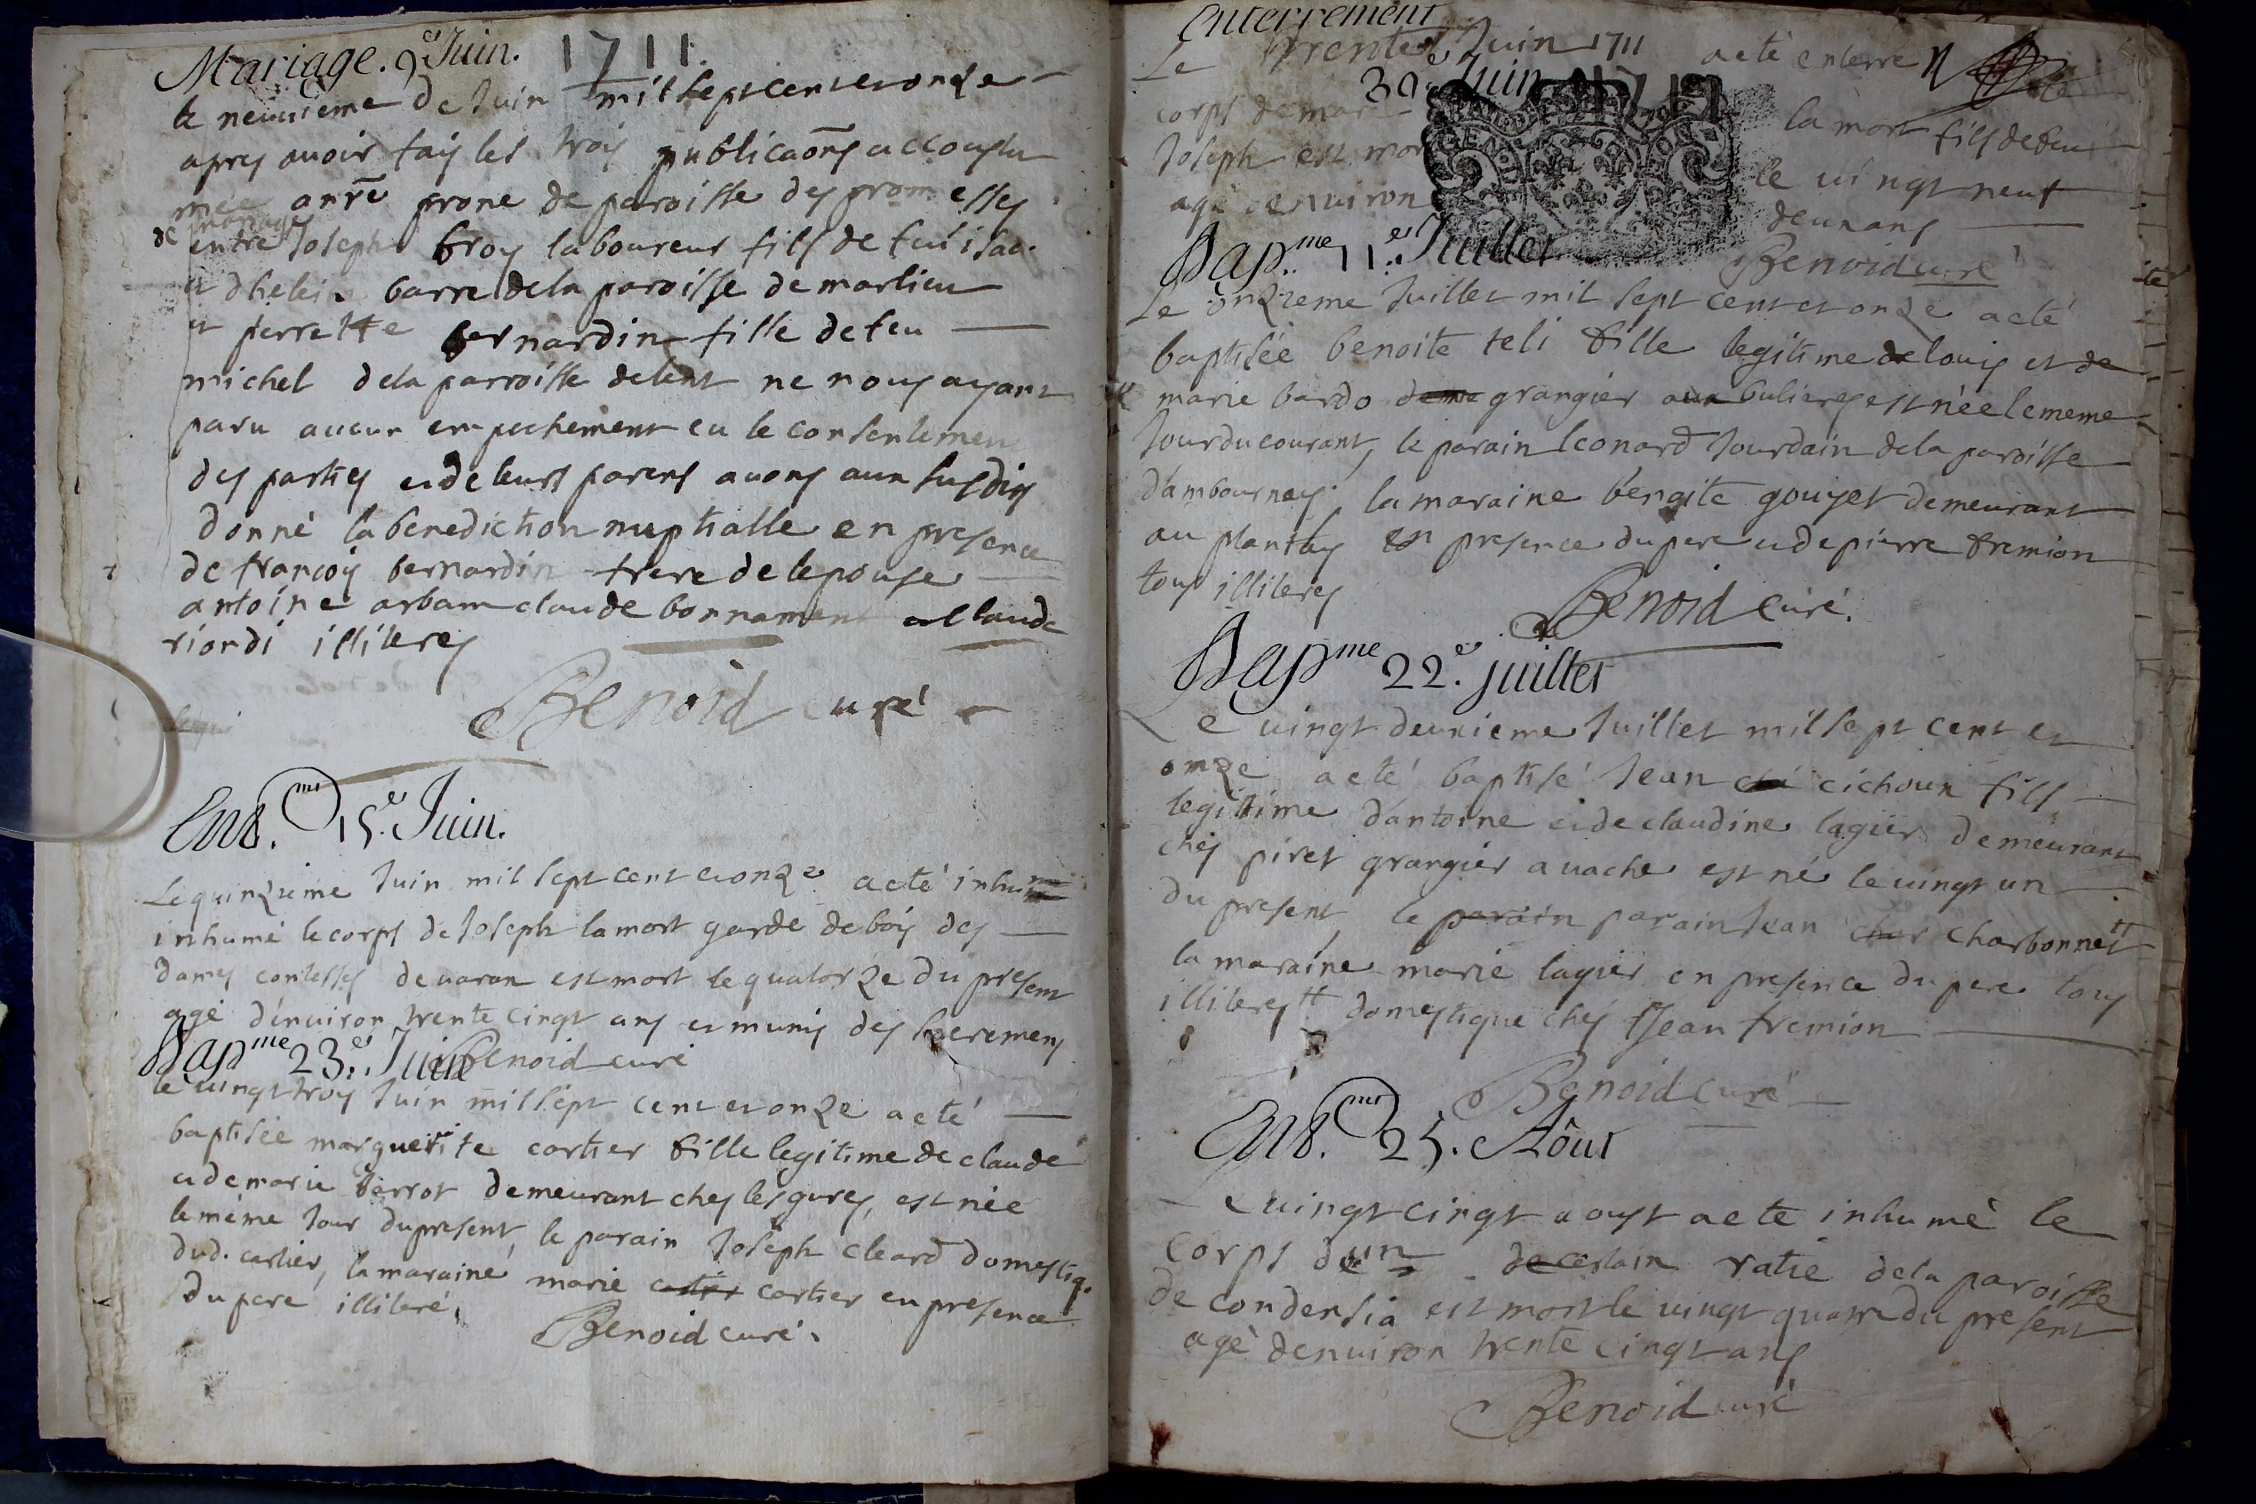 Mariage. 9e Juin. 1711.
le neuvieme de Juin mil sept cent et onze
apres avoir fais les trois publicaõns accoustu
mee a nr̃e prone de paroisse des promesses
de mariages
entre Joseph froy laboureur fils de fui isac
et dhelei barre dela paroisse de marlieu
et perrette bernardin fille de feu
michel dela parroisse delent ne nous ayant
paru aucun empechement eu le consentemen
des parties et de leurs parens avons aux susdis
donné la benediction nuptialle en presence
de francois bernardin frere de lepouse
antoine arbam claude bonnament et claude
riondi illiteres
Benoid curé
Ent.mt 15e Juin.
Le quinzieme Juin mil sept cent et onze a eté inhu
inhumé le corps de Joseph lamort garde de bois des
dames contesses de varan est mort le quatorze du present
agé d'environ trente cinqt ans et munis des sacremens
Bapme 23e Juin Benoid curé
le vingt trois Juin mil sept cent et onze a eté
baptisée marguerite cartier fille legitime de claude
et de marie barrot demeurant ches les gures, est née
le même Jour du present le parain Joseph cleard domestiq.
dud. cartier, la maraine marie cartier cartier en presence
du pere illiteré,
Benoid curé.
Enterrement
Le trente Juin 1711 a eté enterré
30e Juin 1711
corps de mar la mort fils de feu
Joseph est mor le vingt neuf
agé denviron deux ans
Benoid curé
Bap.me 11.e Juillet
Le onzieme Juillet mil sept cent et onze a eté
baptisée benoite teli fille legitime de louis et de
marie bardo deme grangier aux bulieres est née le meme
Jour du courant, le parain leonard Jourdain dela paroisse
dambournay. la maraine benoite gouyet demeurant
au plantay en presence du pere et de pierre fremion
tous illiteres
Benoid curé.
Bapme 22.e juillet
Le vingt deuxieme Juillet mil sept cent et
onze a eté baptisé Jean cichoux fils
legittime dantoine et de claudine lagier demeurant
ches piret grangier a vache est né le vingt un
du present, le parain parain Jean char charbonnet #
la maraine marie lagier en presence du pere tous
illiteres # domestique ches Jean fremion
Benoid curé
Ent.mt 25. Aôut
Le vingt cinqt aoust a eté inhumé le
corps d'un de certain ratié dela paroisse
de condensia est mort le vingt quatre du present
agé denviron trente cinqt ans
Benoid curé